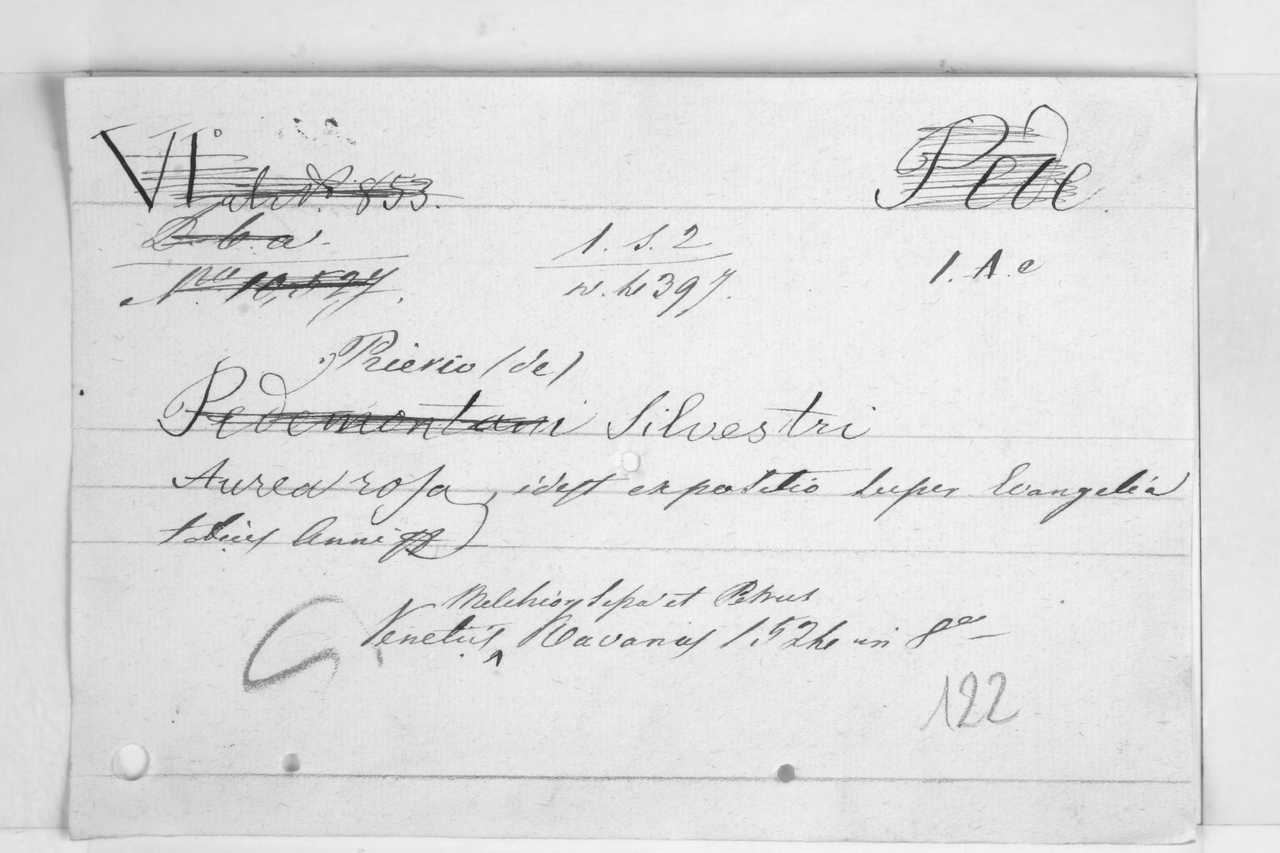 VI°
853.
Pede.
D. b. a.
No 10,527.
1. S. 2
1. A. e
397.
Prierio (de)
Pedemontani Silvestri
Aurea rosa, idest expositio super Evangelia
totius Anni
Melchior Sepa et Petrus
Venetiis, Ravanus 1524 in 8°
122